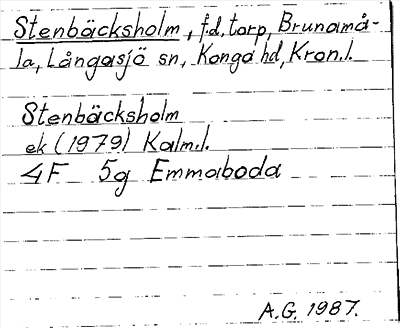 Stenbäcksholm, f.d. torp, Brunamå-
la, Långasjö sn, Konga hd, Kron.l.
Stenbäcksholm
ek (1979) Kalm.l.
4F 5g Emmaboda
A.G. 1987.